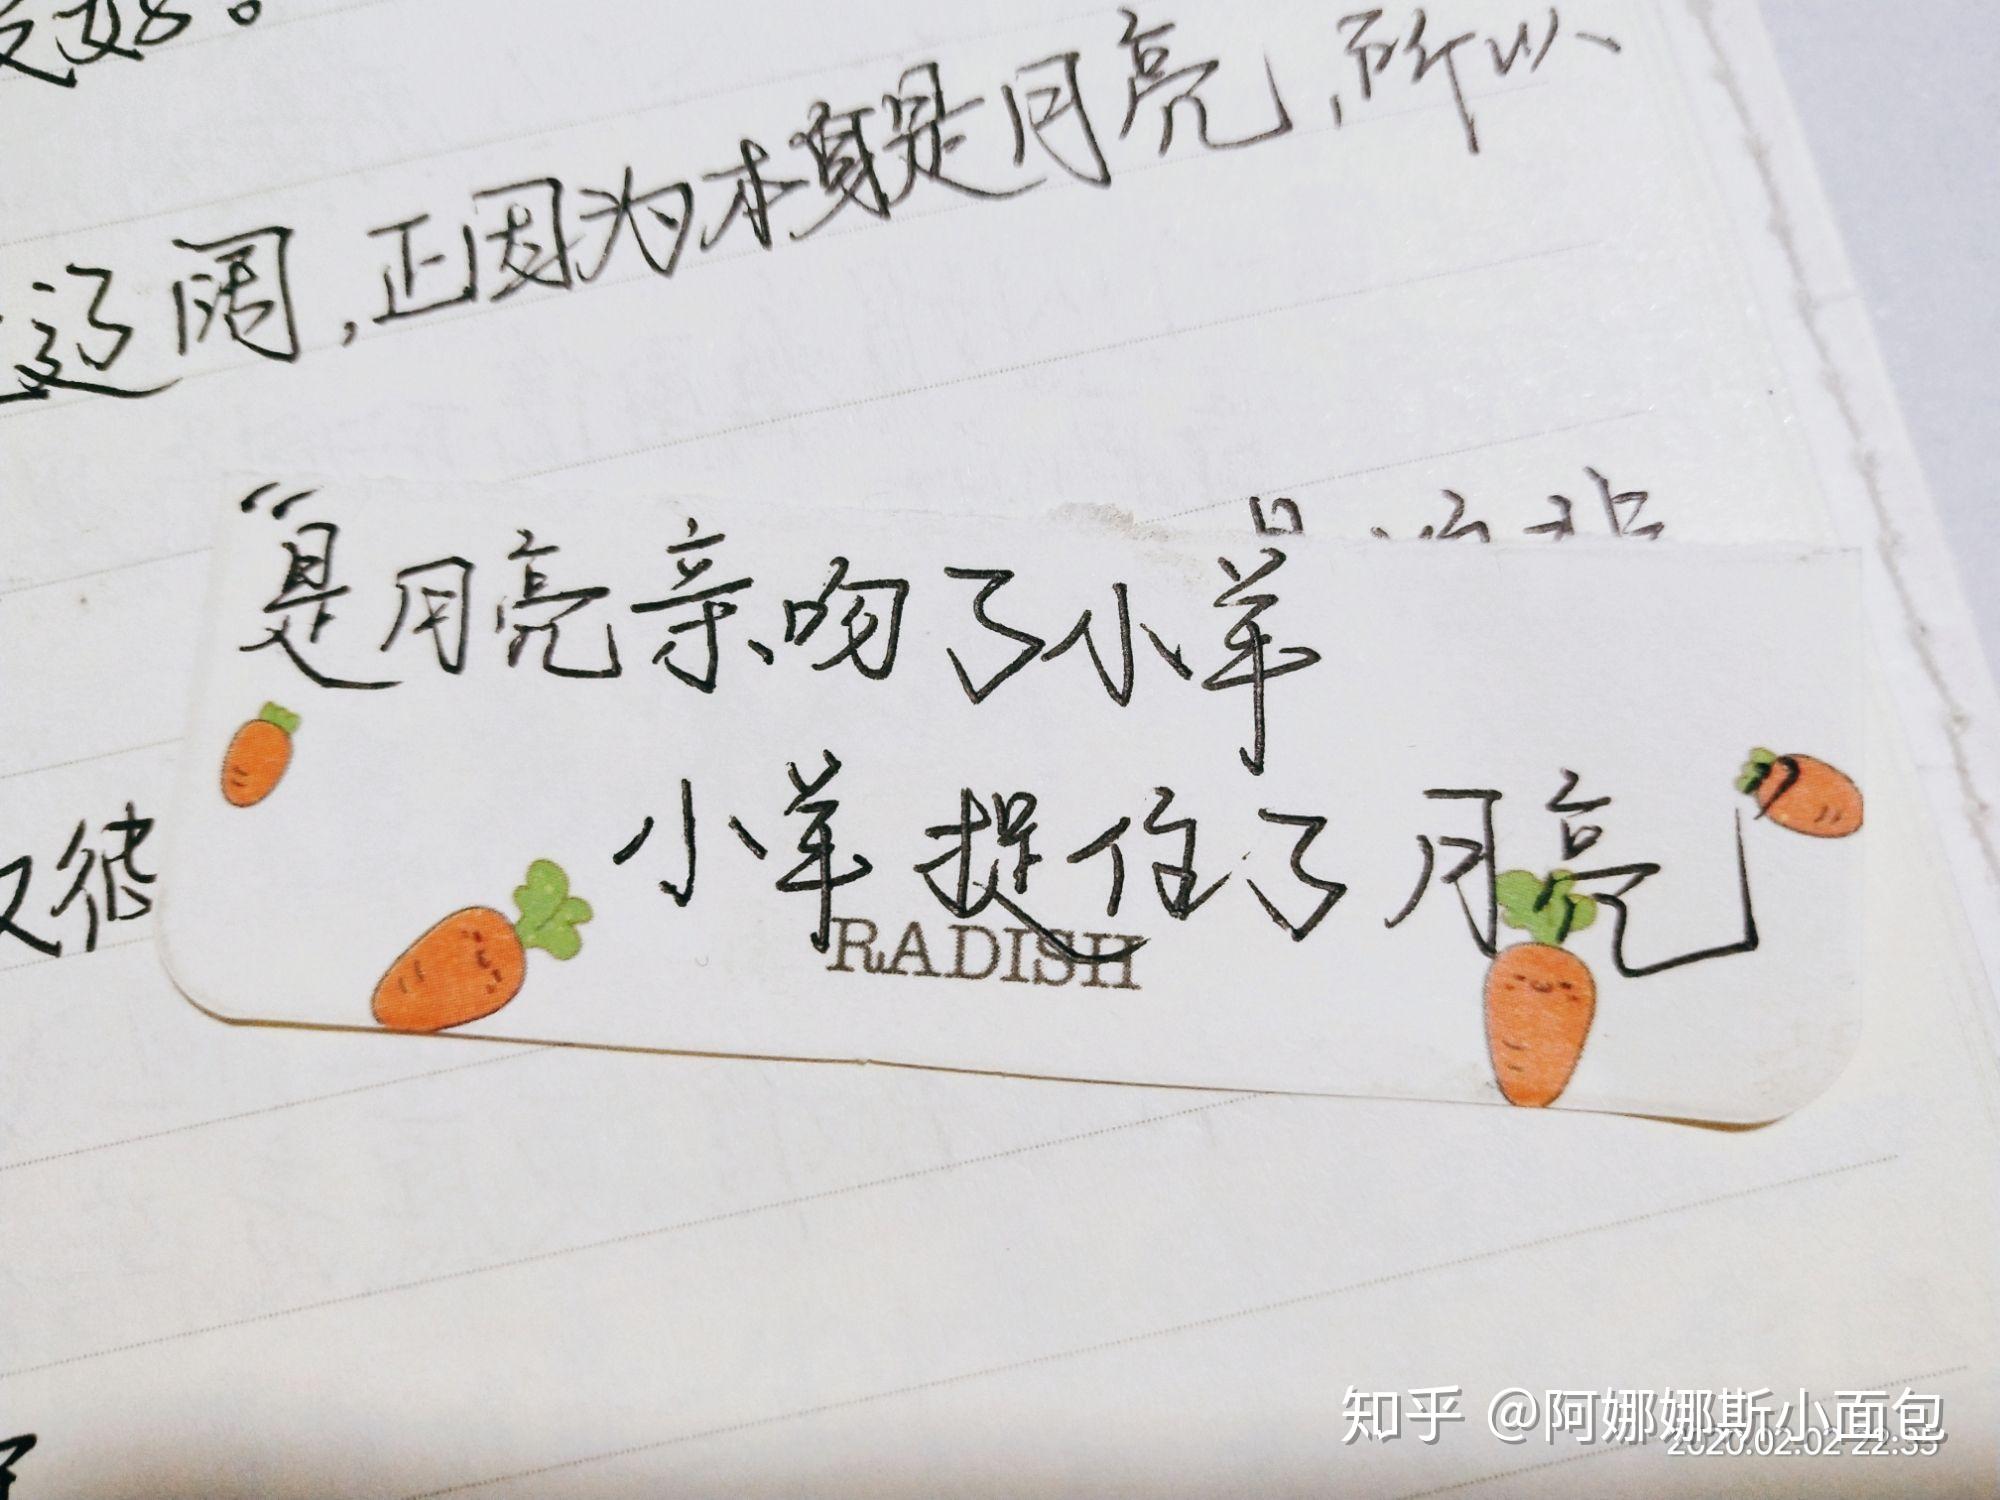 好。
辽阔，正因为本身是月亮，所以
“是月亮亲吻了小羊
小羊捉住了月亮”
RADISH
又彼
知乎 @阿娜娜斯小面包
2020.02.02 22:35